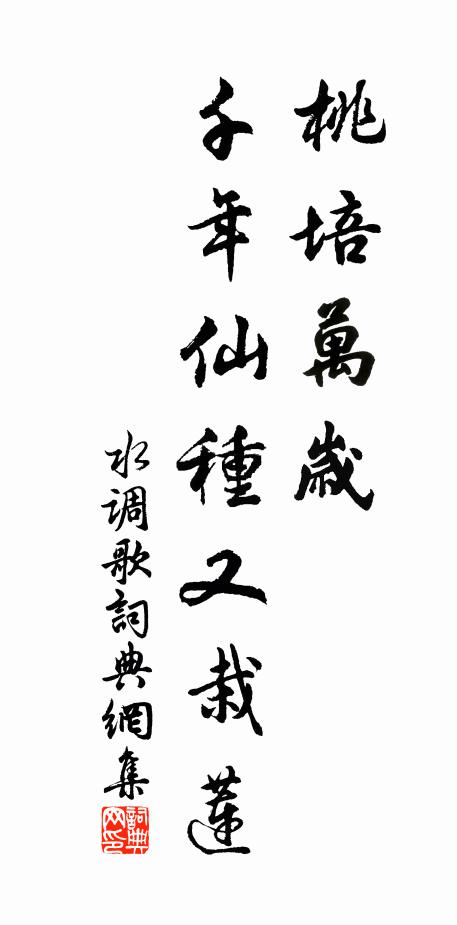 桃培萬歲
千年仙種又栽蓮
水调歌詞典網集
詞典网印